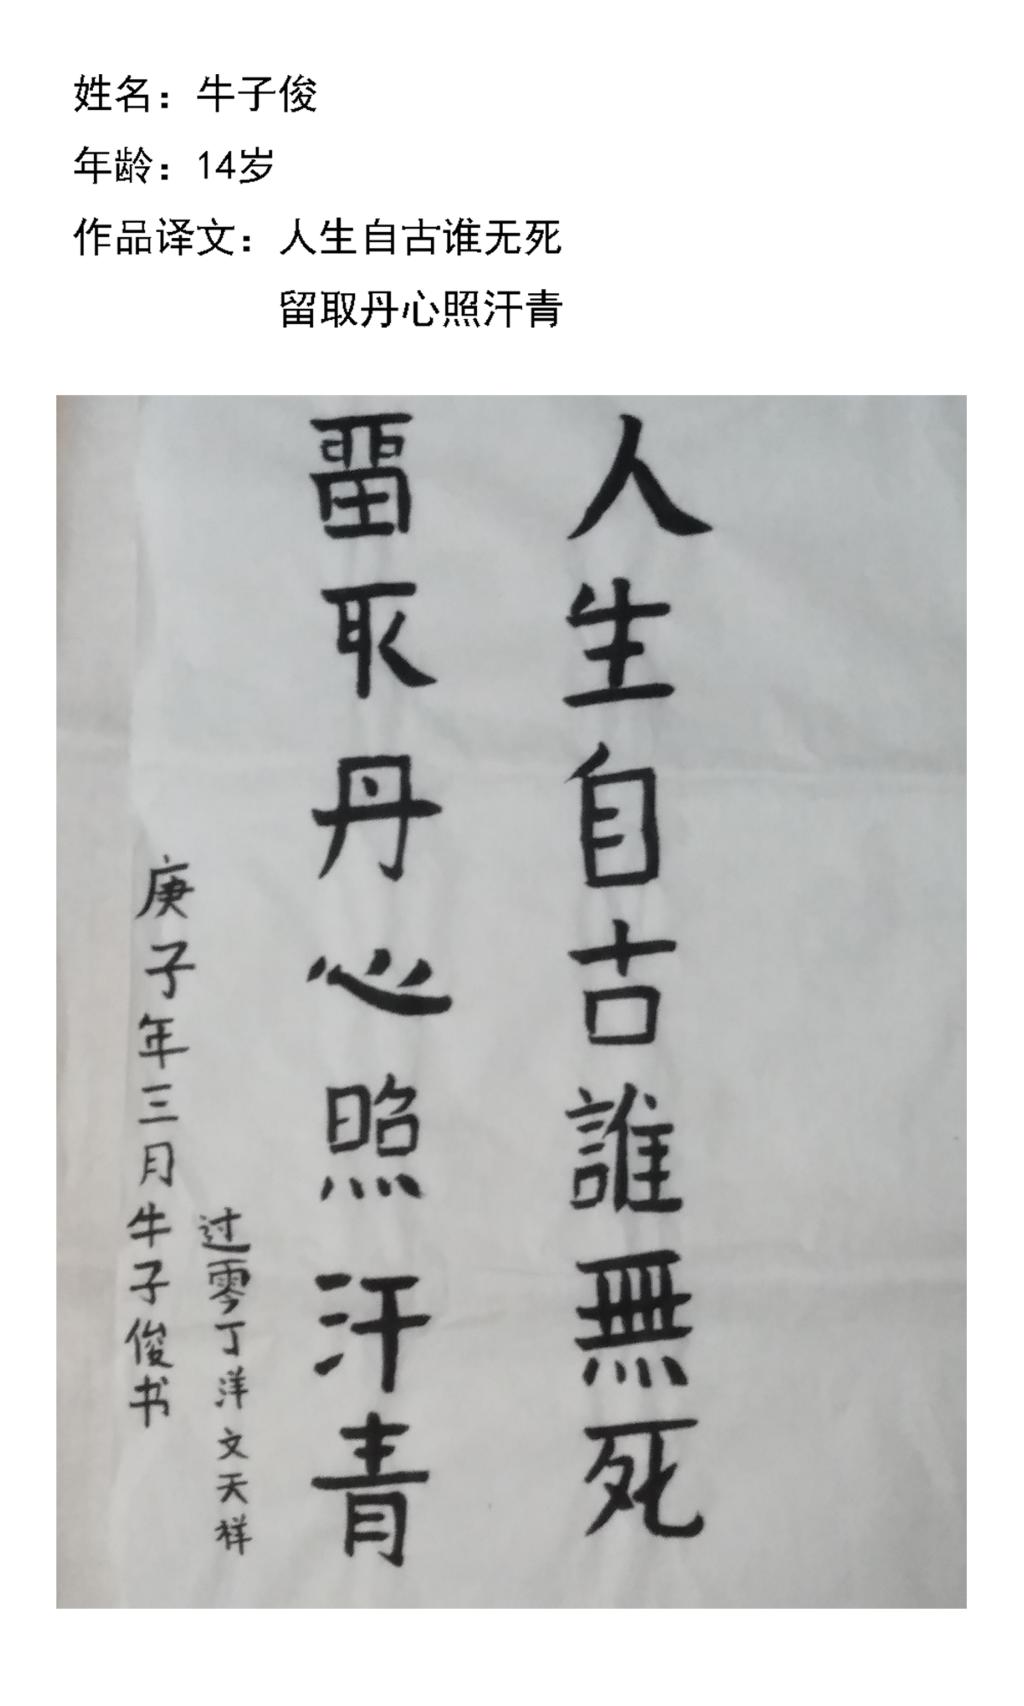 姓名：牛子俊
年龄：14岁
作品译文：人生自古谁无死
留取丹心照汗青
人生自古誰無死
畱取丹心照汗青
过零丁洋文天祥
庚子年三月牛子俊书